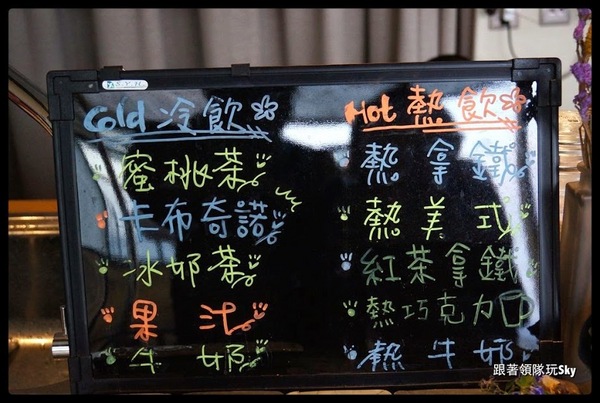 Cold 冷飲
蜜桃茶
卡布奇諾
冰奶茶
果汁
牛奶
Hot 熱飲
熱拿鐵
熱美式
紅茶拿鐵
熱巧克力
熱牛奶
跟著領隊玩Sky